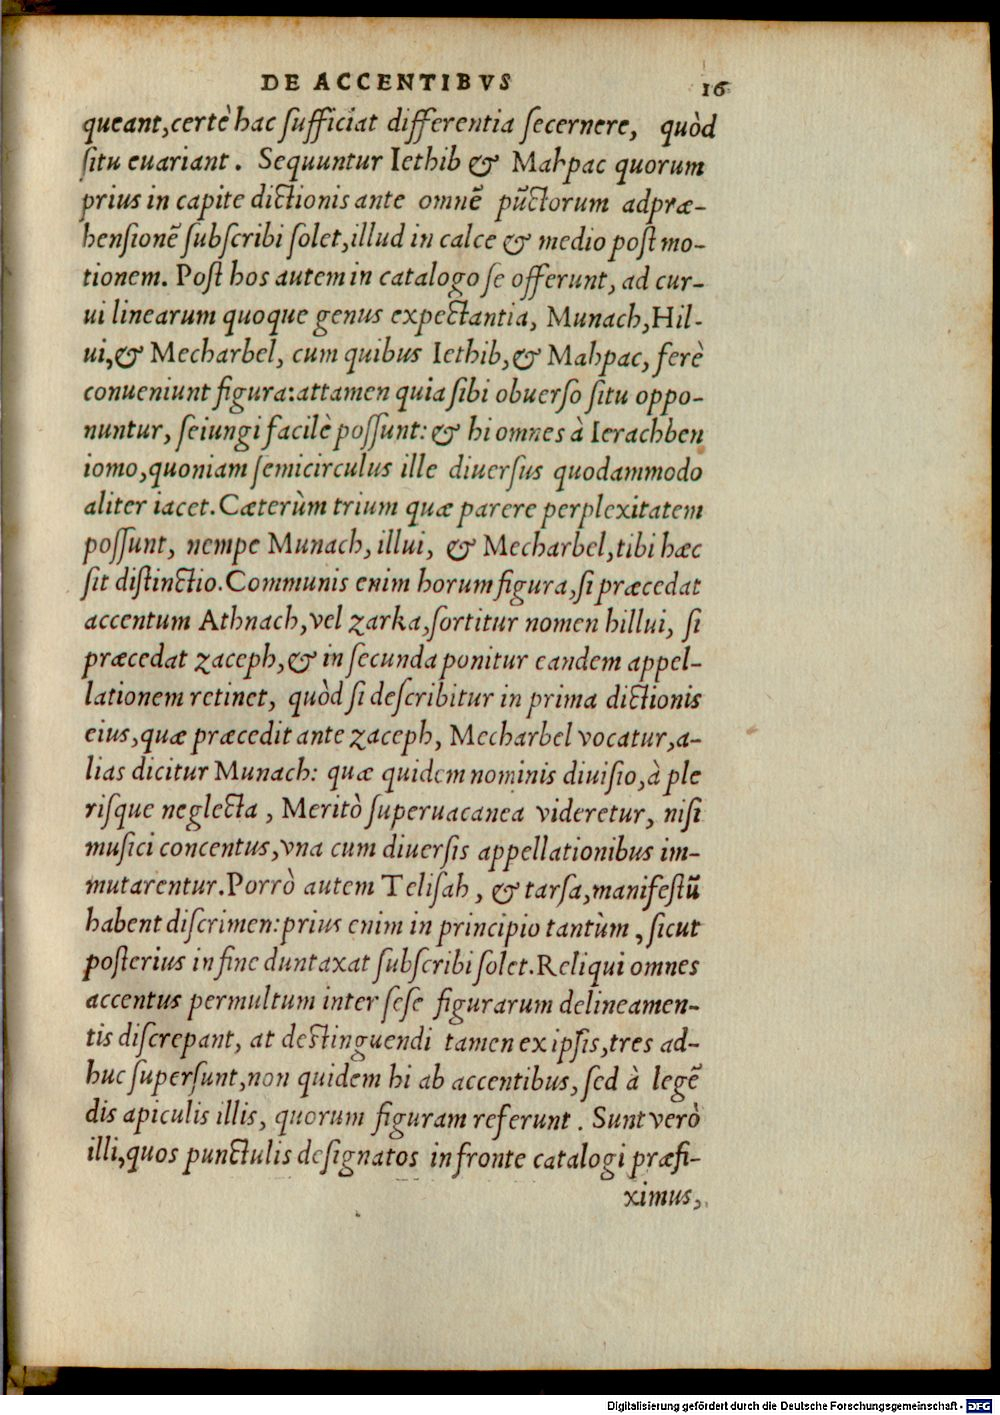 DE ACCENTIBVS 16
queant, certè hac sufficiat differentia secernere, quòd
situ euariant. Sequuntur Iethib & Mahpac quorum
prius in capite dictionis ante omnẽ pũctorum adpræ-
hensionẽ subscribi solet, illud in calce & medio post mo-
tionem. Post hos autem in catalogo se offerunt, ad cur-
ui linearum quoque genus expectantia, Munach, Hil-
ui, & Mecharbel, cum quibus Iethib, & Mahpac, ferè
conueniunt figura: attamen quia sibi obuerso situ oppo-
nuntur, seiungi facilè possunt: & hi omnes à Ierachben
iomo, quoniam semicirculus ille diuersus quodammodo
aliter iacet. Cæterùm trium quæ parere perplexitatem
possunt, nempe Munach, illui, & Mecharbel, tibi hæc
sit distinctio. Communis enim horum figura, si præcedat
accentum Athnach, vel zarka, sortitur nomen hillui, si
præcedat zaceph, & in secunda ponitur eandem appel-
lationem retinet, quòd si describitur in prima dictionis
eius, quæ præcedit ante zaceph, Mecharbel vocatur, a-
lias dicitur Munach: quæ quidem nominis diuisio, à ple
risque neglecta, Meritò superuacanea videretur, nisi
musici concentus, vna cum diuersis appellationibus im-
mutarentur. Porrò autem Telisah, & tarsa, manifestũ
habent discrimen: prius enim in principio tantùm, sicut
posterius in fine duntaxat subscribi solet. Reliqui omnes
accentus permultum inter sese figurarum delineamen-
tis discrepant, at destinguendi tamen ex ipsis, tres ad-
huc supersunt, non quidem hi ab accentibus, sed à legẽ
dis apiculis illis, quorum figuram referunt. Sunt verò
illi, quos punctulis designatos in fronte catalogi præfi-
ximus,
Digitalisierung gefördert durch die Deutsche Forschungsgemeinschaft - DFG